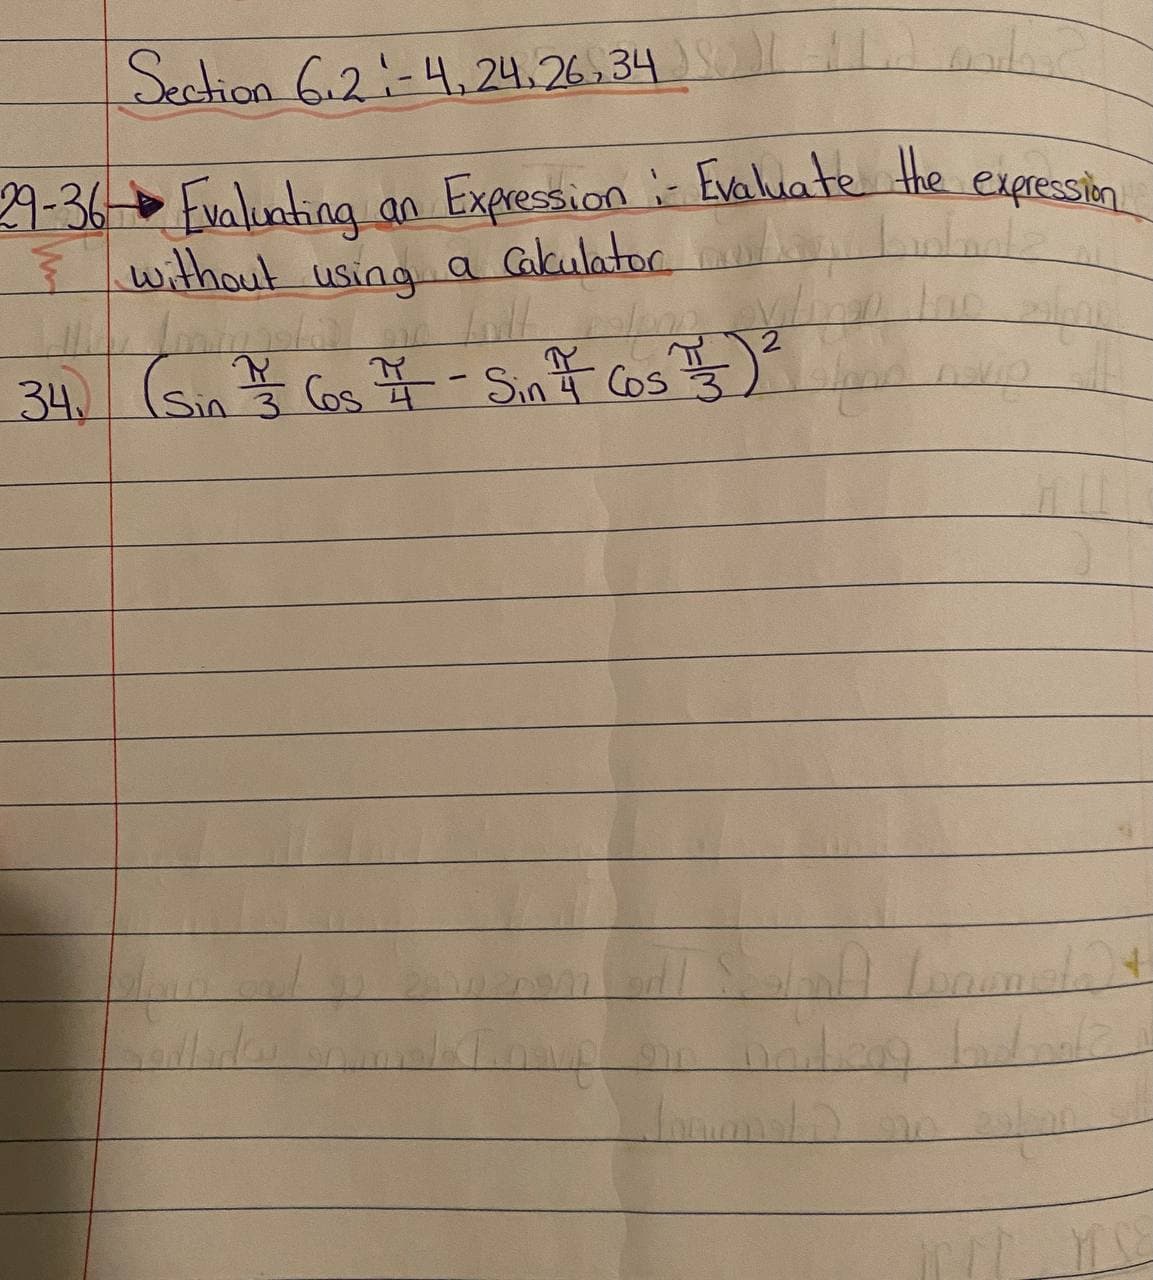 Section 6.2 :- 4, 24, 26, 34
29-36 → Evaluating an Expression :- Evaluate the expression
without using a Calculator
34.) (Sin π/3 Cos π/4 - Sin π/4 Cos π/3)²